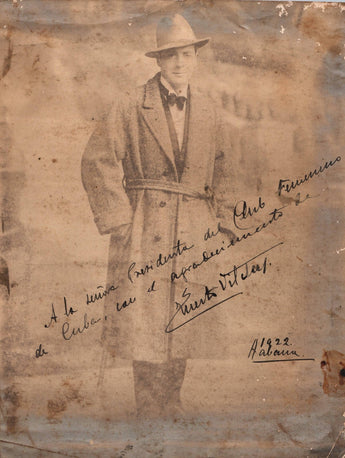 A la señora Presidenta del Club Femenino
de Cuba, con el agradecimiento de
Ernesto Vilches.
1922
Habana